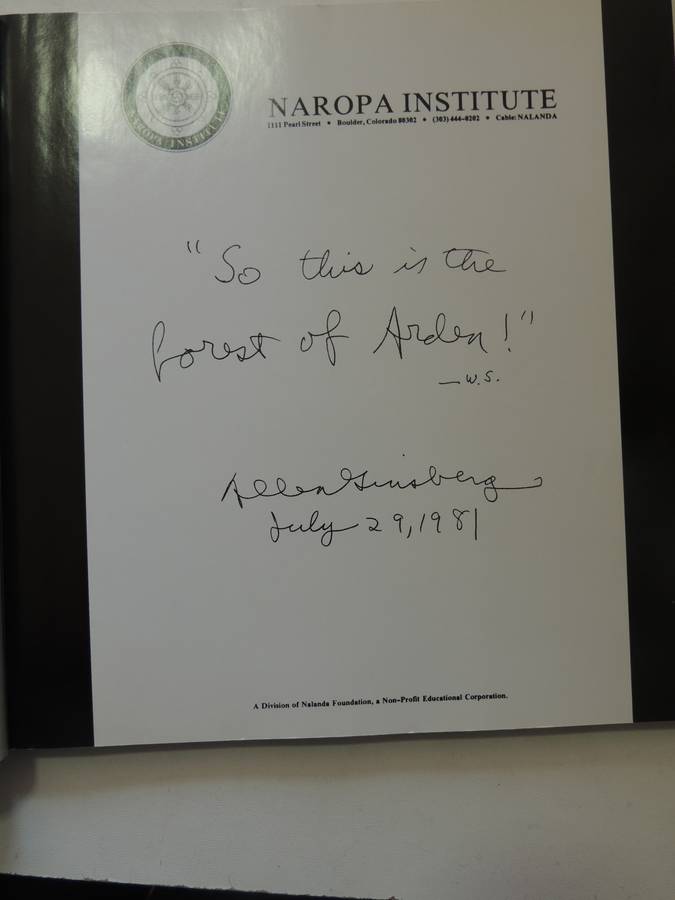 NAROPA INSTITUTE
NAROPA INSTITUTE
1111 Pearl Street • Boulder, Colorado 80302 • (303) 444-0202 • Cable: NALANDA
"So this is the
forest of Arden!"
— W.S.
Allen Ginsberg
July 29, 1981
A Division of Nalanda Foundation, a Non-Profit Educational Corporation.